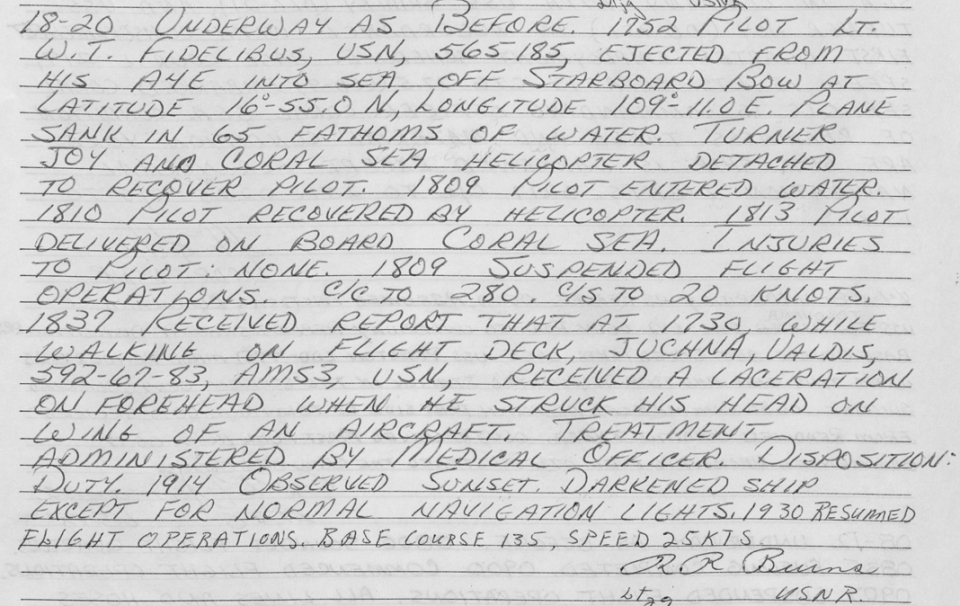 18-20 UNDERWAY AS BEFORE. 1752 PILOT LT.
W.T. FIDELIBUS, USN, 565185, EJECTED FROM
HIS A4E INTO SEA OFF STARBOARD BOW AT
LATITUDE 16°-55.0 N, LONGITUDE 109°-11.0 E. PLANE
SANK IN 65 FATHOMS OF WATER. TURNER
JOY AND CORAL SEA HELICOPTER DETACHED
TO RECOVER PILOT. 1809 PILOT ENTERED WATER.
1810 PILOT RECOVERED BY HELICOPTER. 1813 PILOT
DELIVERED ON BOARD CORAL SEA. INJURIES
TO PILOT: NONE. 1809 SUSPENDED FLIGHT
OPERATIONS. C/C TO 280. C/S TO 20 KNOTS.
1837 RECEIVED REPORT THAT AT 1730, WHILE
WALKING ON FLIGHT DECK, JUCHNA, VALDIS,
592-67-83, AMS3, USN, RECEIVED A LACERATION
ON FOREHEAD WHEN HE STRUCK HIS HEAD ON
WING OF AN AIRCRAFT. TREATMENT
ADMINISTERED BY MEDICAL OFFICER. DISPOSITION:
DUTY. 1914 OBSERVED SUNSET. DARKENED SHIP
EXCEPT FOR NORMAL NAVIGATION LIGHTS. 1930 RESUMED
FLIGHT OPERATIONS. BASE COURSE 135, SPEED 25 KTS
R R Burns
Ltjg USNR.